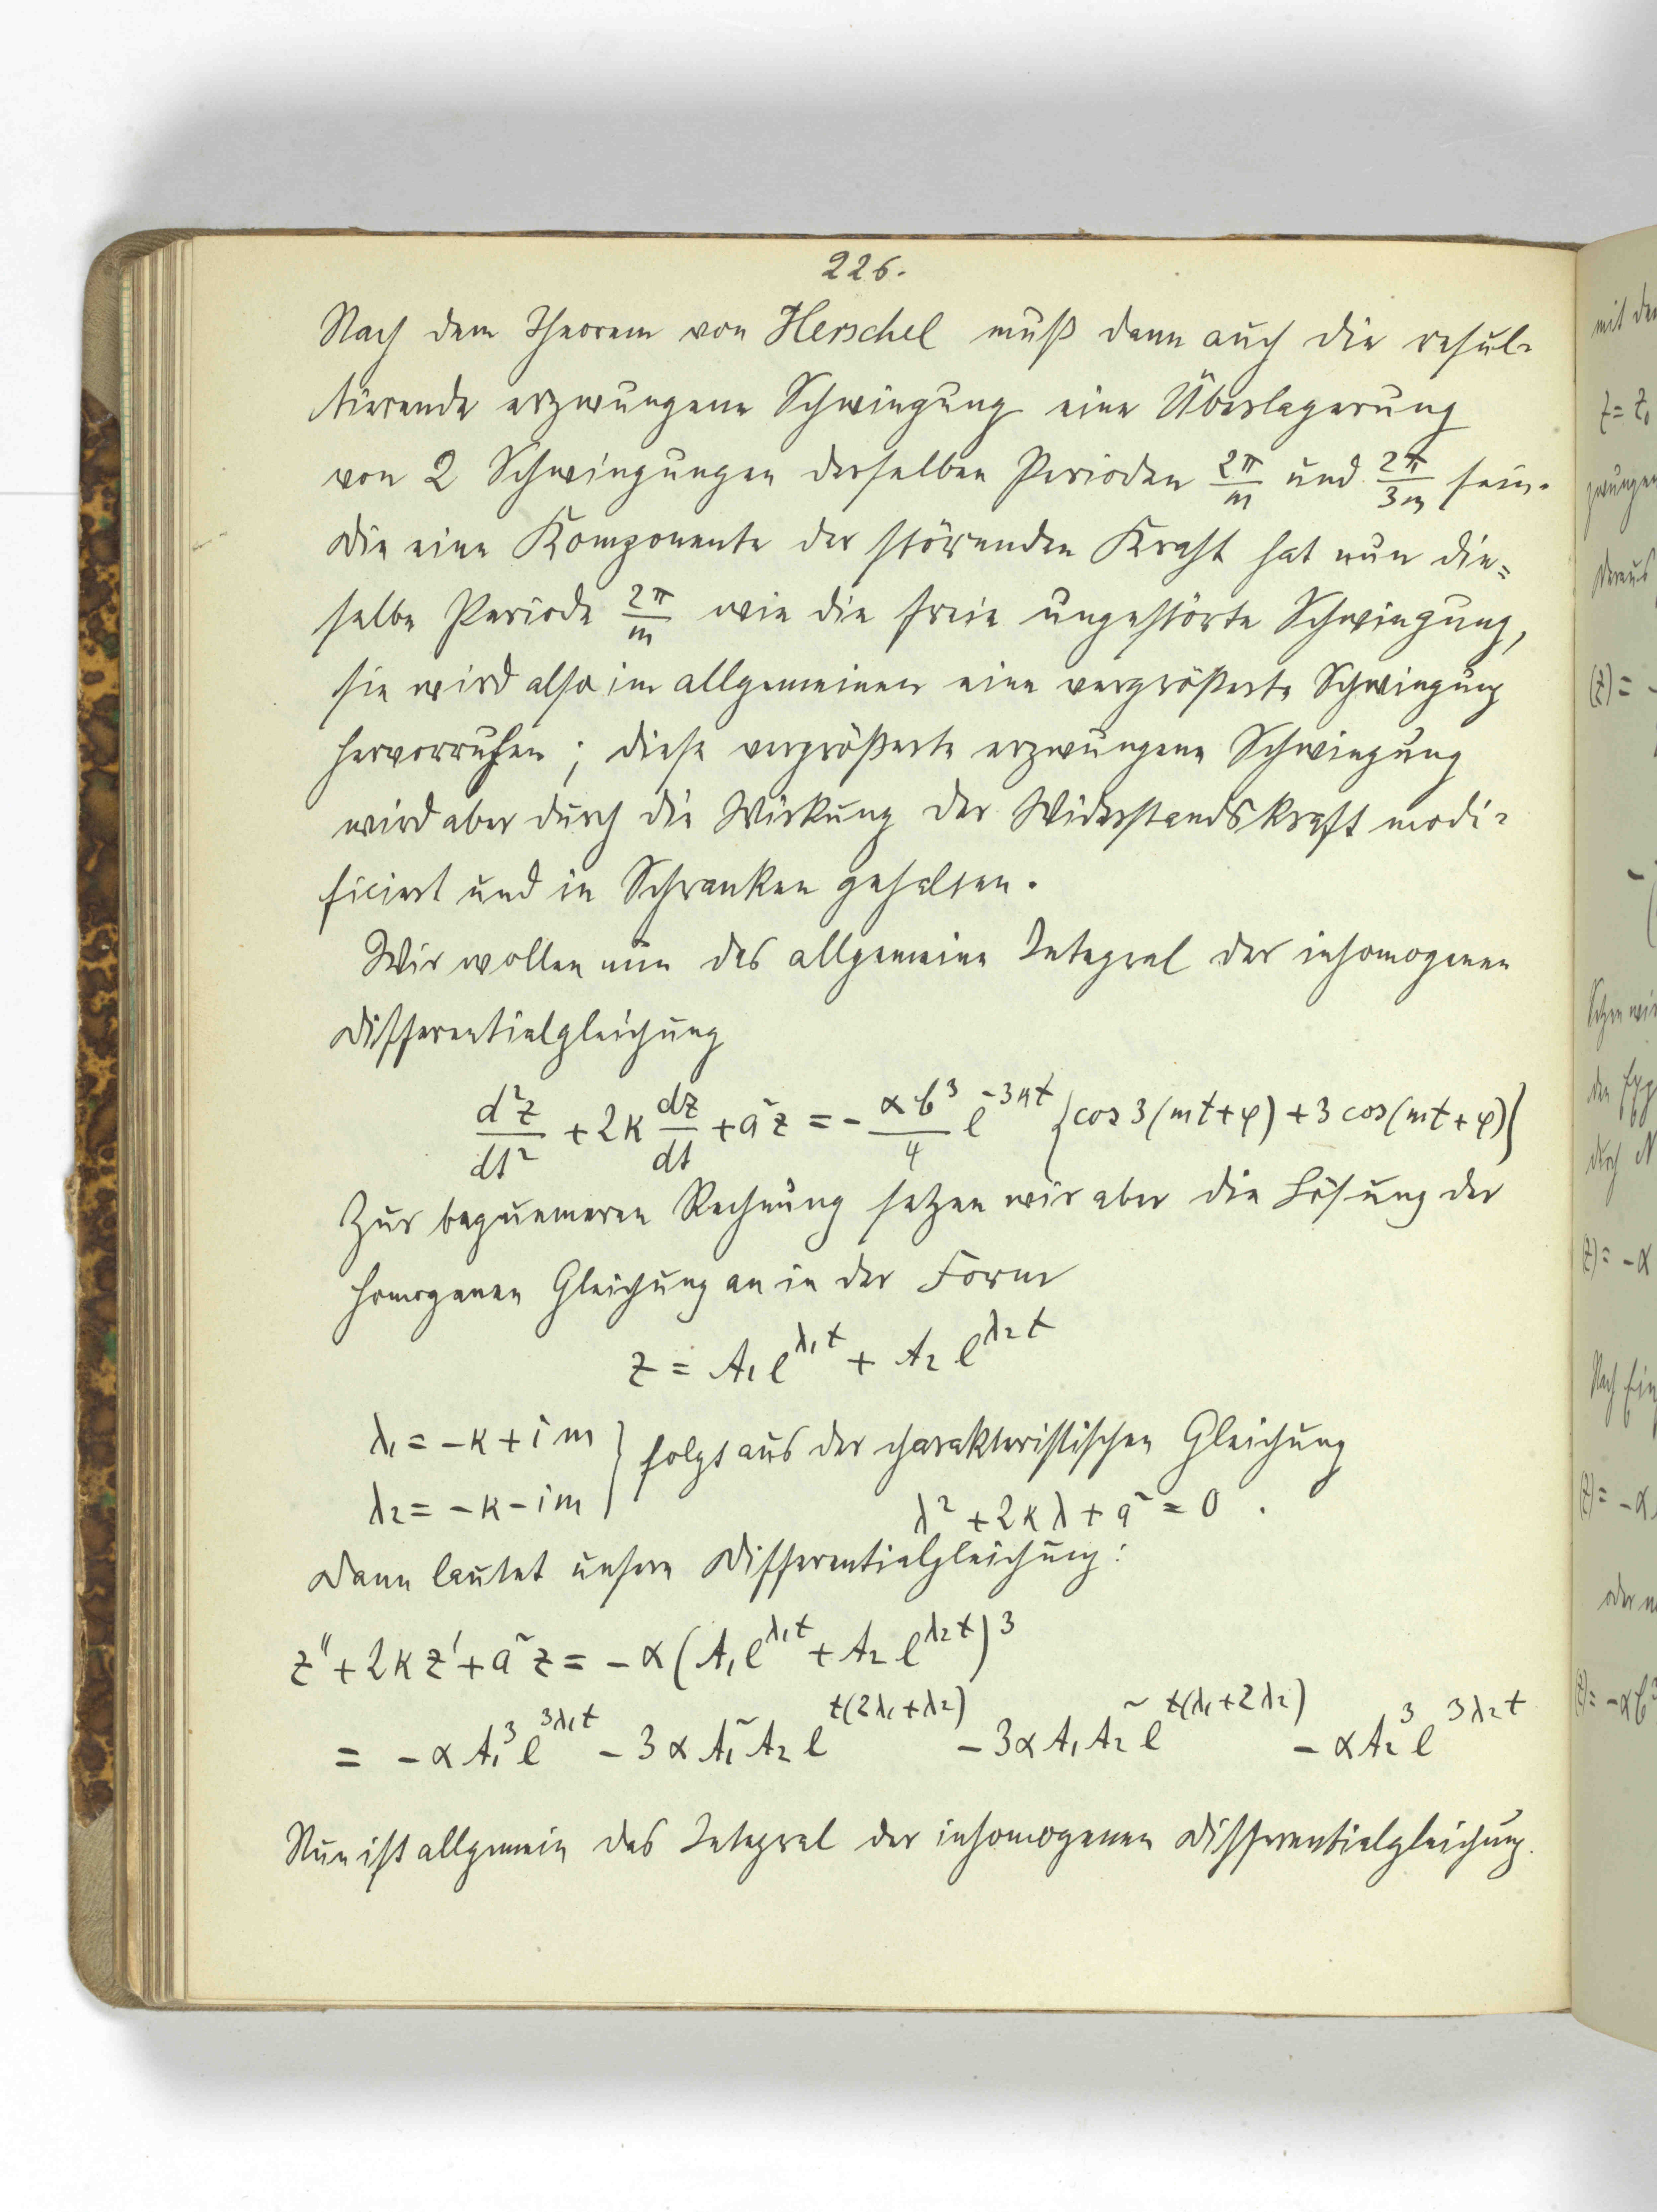 226.
Nach dem Theorem von Herschel muß dann auch die resul-
tierende erzwungene Schwingung eine Überlagerung
von 2 Schwingungen derselben Perioden 2π/m und 2π/3m sein.
Die eine Komponente der störenden Kraft hat nun die=
selbe Periode 2π/m wie die freie ungestörte Schwingung,
sie wird also im allgemeinen eine vergrößerte Schwingung
hervorrufen; diese vergrößerte erzwungene Schwingung
wird aber durch die Wirkung der Widerstandskraft modi-
ficiert und in Schranken gehalten.
Wir wollen nun das allgemeine Integral der inhomogenen
Differentialgleichung
d²z/dt² + 2κ dz/dt + a²z = - αb³/4 e^{-3κt} {cos 3(mt+φ) + 3 cos(mt+φ)}
Zur bequemeren Rechnung setzen wir aber die Lösung der
homogenen Gleichung an in der Form
z = A₁e^{λ₁t} + A₂e^{λ₂t}
λ₁ = -κ + im } folgt aus der charakteristischen Gleichung
λ₂ = -κ - im } λ² + 2κλ + a² = 0.
Dann lautet unsere Differentialgleichung:
z'' + 2κz' + a²z = -α(A₁e^{λ₁t} + A₂e^{λ₂t})³
= -αA₁³e^{3λ₁t} - 3αA₁²A₂e^{t(2λ₁+λ₂)} - 3αA₁A₂²e^{t(λ₁+2λ₂)} - αA₂³e^{3λ₂t}
Nun ist allgemein das Integral der inhomogenen Differentialgleichung.
mit
z = z₀
Daraus
(z) =
Setzen wir
durch N
(z) = -α
Nach
(z) = -α
oder
(z) = -αb³